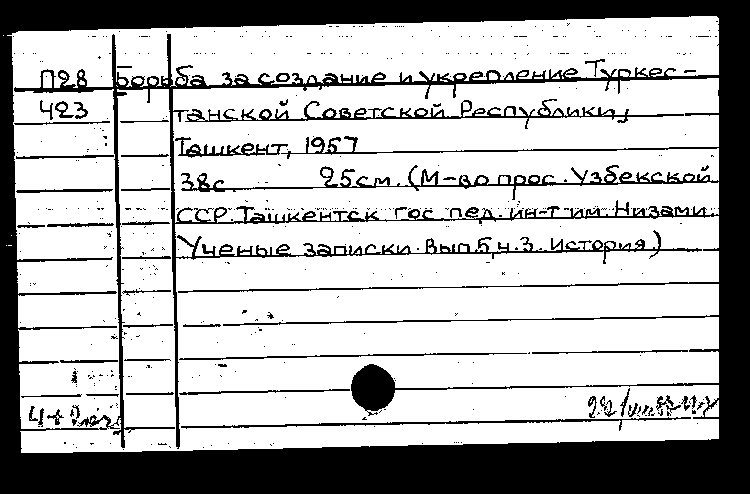 П28 Борьба за создание и укрепление Туркес-
423 танской Советской Республики,
Ташкент, 1957
38с. 25см. (М-во прос. Узбекской
ССР. Ташкентск гос пед. ин-т им. Низами.
Ученые записки. Вып.5, ч.3. История.)